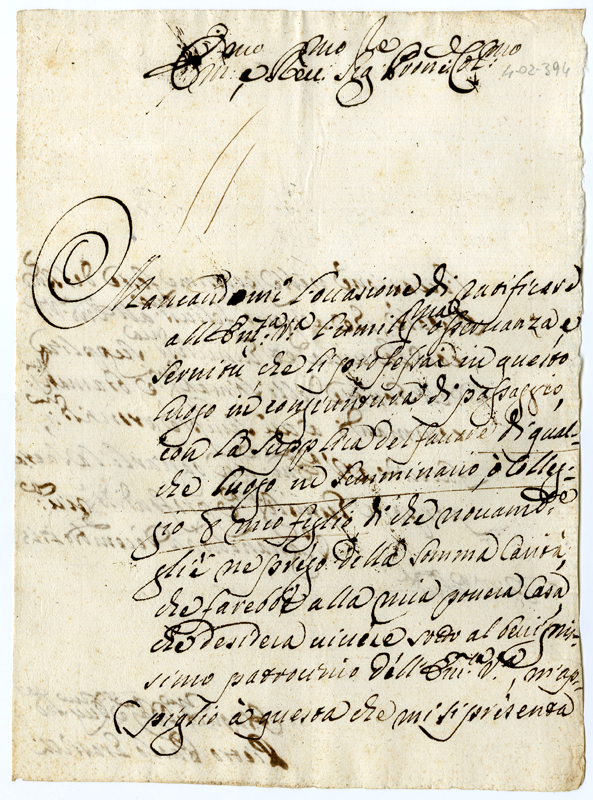 Em.mo e Rev.mo Sig.re Prone Col.mo
402-394
Mancandomi l'occasione di ratificare
all'Em.za V.ra l'umil osservanza, e
servitù, che li professai in questo
luogo in congiuntura di passaggio,
con la supplica del favore di qual-
che luogo in Semminario, ò Colleg-
gio p mio figlio di che novam.te
gliè ne prego della somma Carità,
che farebbe alla mia povera Casa
che desidera vivere sotto al benignis-
simo patrocinio dell'Em.za V.ra, m'ap-
piglio à questa che mi si presenta